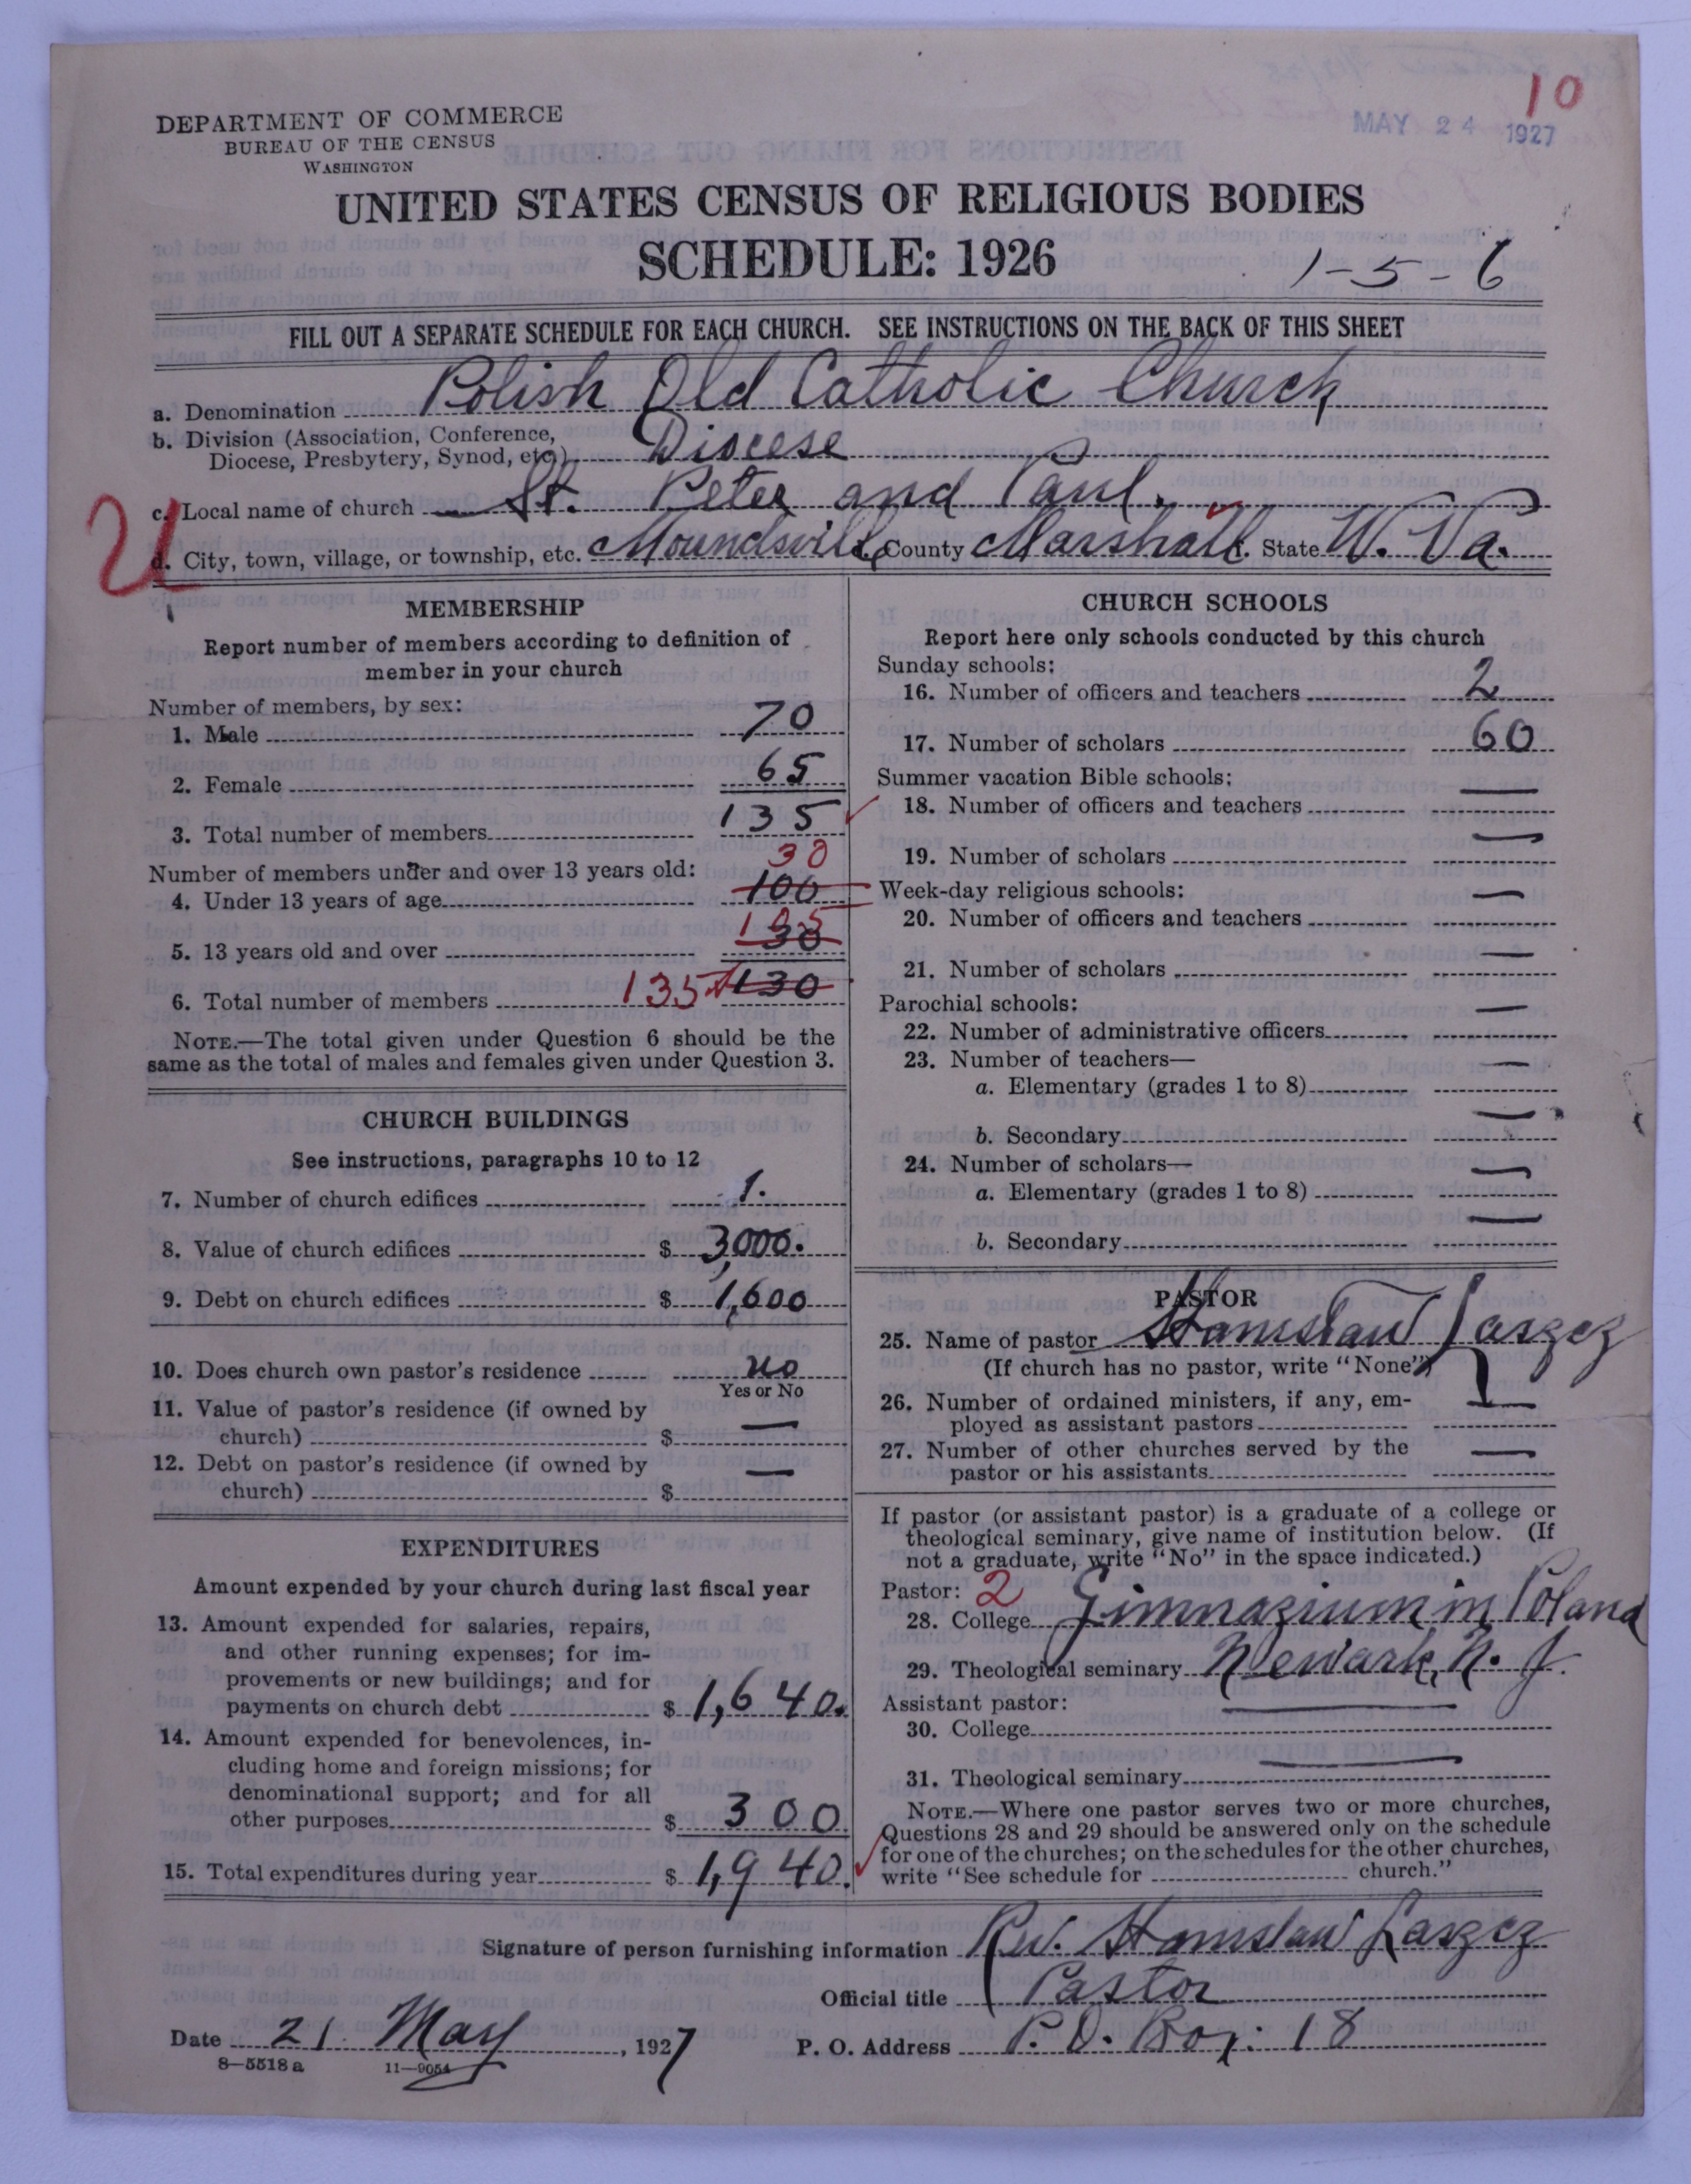 10
MAY 24 1927
DEPARTMENT OF COMMERCE
BUREAU OF THE CENSUS
WASHINGTON
UNITED STATES CENSUS OF RELIGIOUS BODIES
SCHEDULE: 1926
1-5-6
FILL OUT A SEPARATE SCHEDULE FOR EACH CHURCH. SEE INSTRUCTIONS ON THE BACK OF THIS SHEET
a. Denomination Polish Old Catholic Church
b. Division (Association, Conference, Diocese, Presbytery, Synod, etc.) Diocese
c. Local name of church St. Peter and Paul.
d. City, town, village, or township, etc. Moundsville County Marshall. State W. Va.
MEMBERSHIP
Report number of members according to definition of
member in your church
Number of members, by sex:
1. Male 70
2. Female 65
3. Total number of members 135
Number of members under and over 13 years old:
30
4. Under 13 years of age 100
5. 13 years old and over 30
6. Total number of members 135 130
NOTE.—The total given under Question 6 should be the
same as the total of males and females given under Question 3.
CHURCH BUILDINGS
See instructions, paragraphs 10 to 12
7. Number of church edifices 1.
8. Value of church edifices $ 3,000.
9. Debt on church edifices $ 1,600
10. Does church own pastor's residence no
Yes or No
11. Value of pastor's residence (if owned by
church) $ —
12. Debt on pastor's residence (if owned by
church) $ —
EXPENDITURES
Amount expended by your church during last fiscal year
13. Amount expended for salaries, repairs,
and other running expenses; for im-
provements or new buildings; and for
payments on church debt $ 1,640.
14. Amount expended for benevolences, in-
cluding home and foreign missions; for
denominational support; and for all
other purposes $ 300
15. Total expenditures during year $ 1,940.
CHURCH SCHOOLS
Report here only schools conducted by this church
Sunday schools:
16. Number of officers and teachers 2
17. Number of scholars 60
Summer vacation Bible schools:
18. Number of officers and teachers —
19. Number of scholars —
Week-day religious schools:
20. Number of officers and teachers —
21. Number of scholars —
Parochial schools:
22. Number of administrative officers —
23. Number of teachers—
a. Elementary (grades 1 to 8) —
b. Secondary —
24. Number of scholars—
a. Elementary (grades 1 to 8) —
b. Secondary —
PASTOR
25. Name of pastor Stanislaw Laszcz
(If church has no pastor, write "None")
26. Number of ordained ministers, if any, em-
ployed as assistant pastors —
27. Number of other churches served by the
pastor or his assistants —
If pastor (or assistant pastor) is a graduate of a college or
theological seminary, give name of institution below. (If
not a graduate, write "No" in the space indicated.)
Pastor: 2
28. College Gimnazium in Poland
29. Theological seminary Newark, N. J.
Assistant pastor:
30. College —
31. Theological seminary —
NOTE.—Where one pastor serves two or more churches,
Questions 28 and 29 should be answered only on the schedule
for one of the churches; on the schedules for the other churches,
write "See schedule for church."
Signature of person furnishing information Rev. Stanislaw Laszcz
Official title Pastor
Date 21. May, 1927 P. O. Address P. O. Box: 18
8—5518 a 11—9054